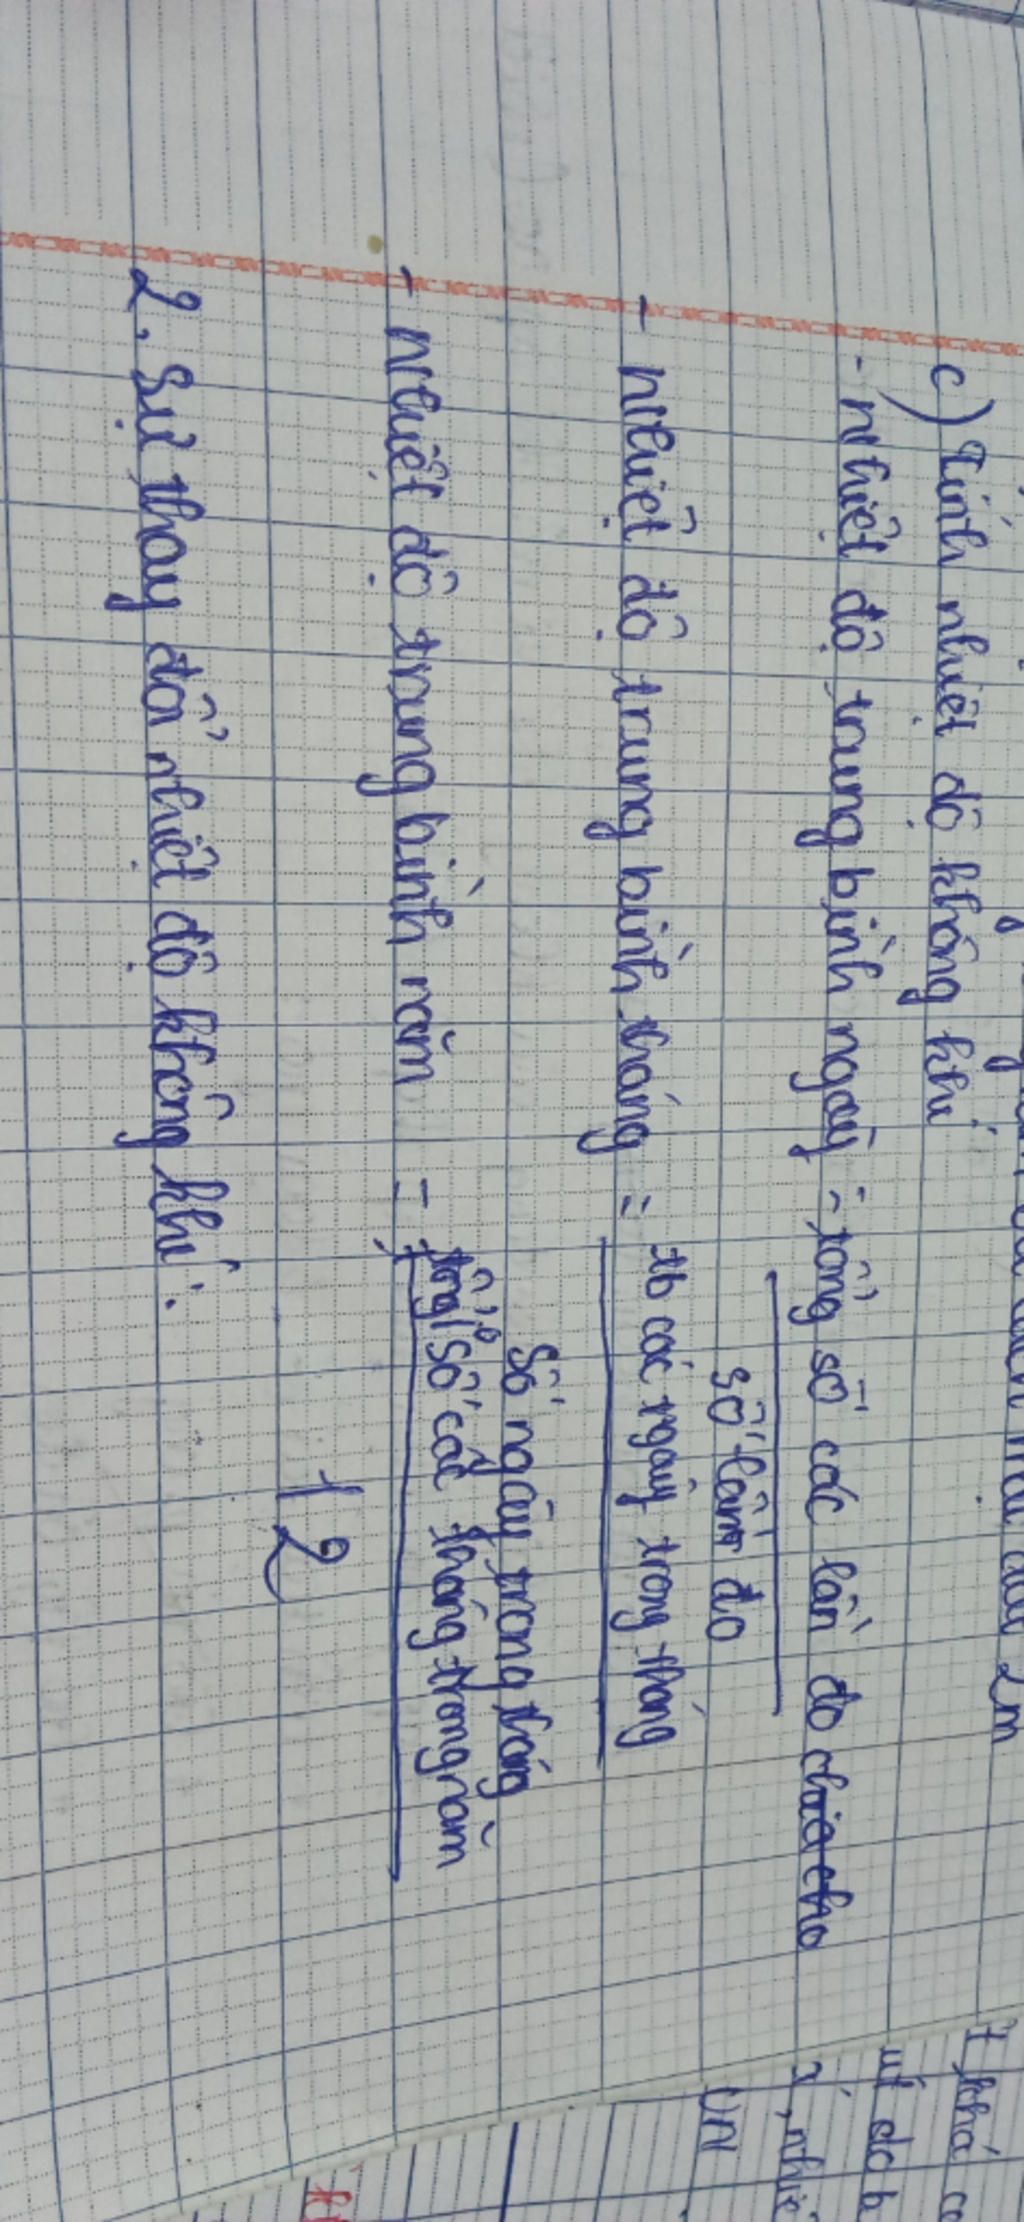 2m
c) Tính nhiệt độ không khí
- nhiệt độ trung bình ngày = tổng số các lần đo chia cho
số lần đo
- nhiệt độ trung bình tháng = tb các ngày trong tháng
số ngày trong tháng
- nhiệt độ trung bình năm = tổng số các tháng trong năm
12
2. Sự thay đổi nhiệt độ không khí.